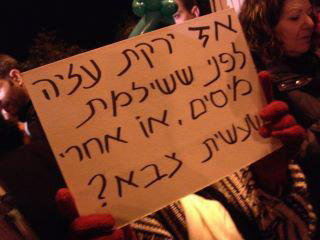 אז ירקת עליה
לפני ששילמת
מיסים, או אחרי
שעשית צבא?